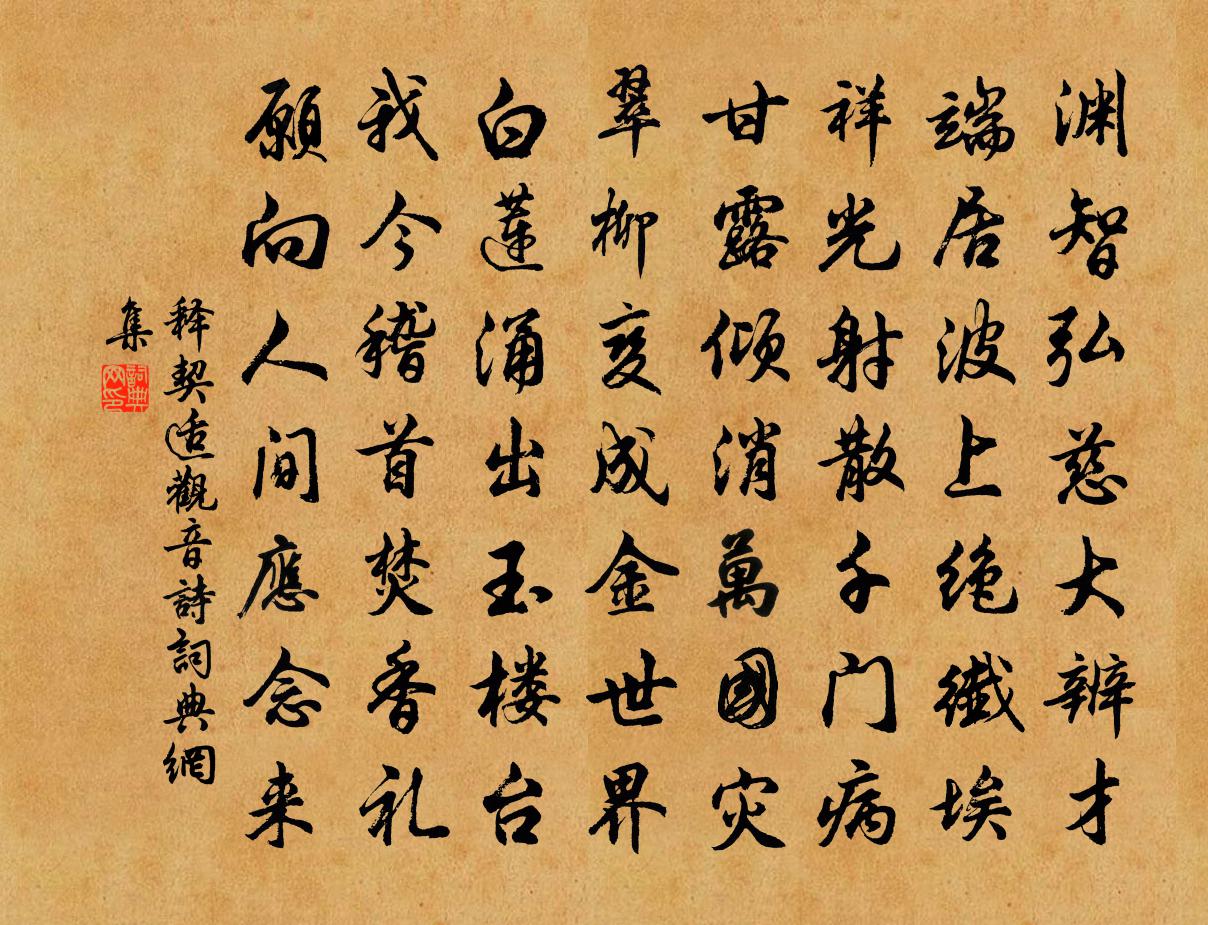 渊智弘慈大辨才
端居波上绝纖埃
祥光射散千门病
甘露倾消萬國灾
翠柳变成金世界
白莲涌出玉楼台
我今稽首焚香礼
願向人间應念来
释契适觀音詩詞典網
集
詞典网印